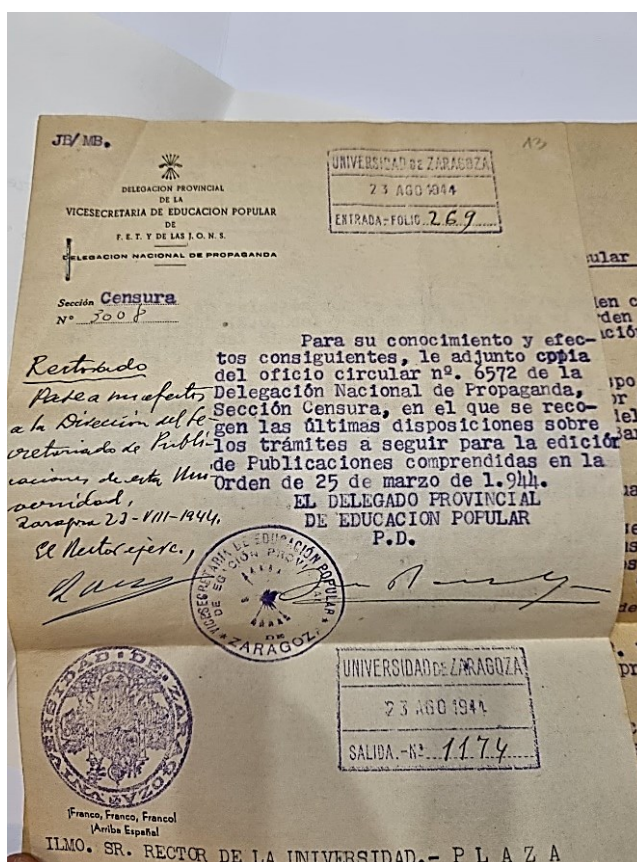 JB/ MB.
DELEGACION PROVINCIAL
DE LA
VICESECRETARIA DE EDUCACION POPULAR
DE
F. E. T. Y DE LAS J. O. N. S.
DELEGACION NACIONAL DE PROPAGANDA
UNIVERSIDAD DE ZARAGOZA
23 AGO 1944
ENTRADA-FOLIO 269
Sección Censura
Nº 3008
Para su conocimiento y efec-
tos consiguientes, le adjunto copia
del oficio circular nº. 6572 de la
Delegación Nacional de Propaganda,
Sección Censura, en el que se reco-
gen las últimas disposiciones sobre
los trámites a seguir para la edición
de Publicaciones comprendidas en la
Orden de 25 de marzo de 1.944.
EL DELEGADO PROVINCIAL
DE EDUCACION POPULAR
P.D.
Rectorado
Pase a mis efectos
a la Dirección del Se-
cretariado de Publi-
caciones de esta Uni-
versidad,
Zaragoza 23-VIII-1944.
El Rector ejerc.,
VICESECRETARIA DE EDUCACIÓN POPULAR
ZARAGOZA
UNIVERSIDAD DE ZARAGOZA
UNIVERSIDAD DE ZARAGOZA
23 AGO 1944
SALIDA.-Nº 1174
¡Franco, Franco, Franco!
¡Arriba España!
ILMO. SR. RECTOR DE LA UNIVERSIDAD.- P L A Z A